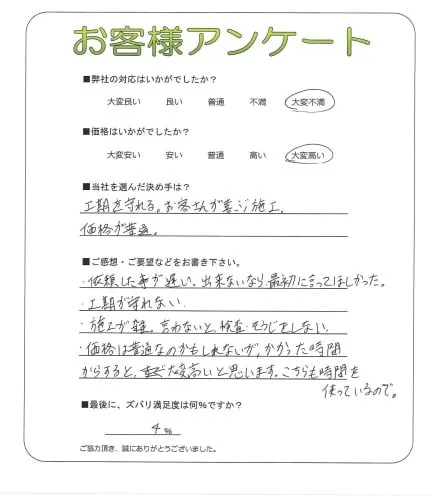 お客様アンケート
■弊社の対応はいかがでしたか?
大変良い 良い 普通 不満 大変不満
■価格はいかがでしたか?
大変安い 安い 普通 高い 大変高い
■当社を選んだ決め手は?
工期を守れる。お客さんが喜ぶ施工。
価格が普通。
■ご感想・ご要望などをお書き下さい。
・依頼した事が遅い。出来ないなら最初に言ってほしかった。
・工期が守れない
・施工が雑。言わないと、検査・そうじをしない
・価格は普通なのかもしれないが、かかった時間
からすると、大変高いと思います。こちらも時間を
使っているので。
■最後に、ズバリ満足度は何%ですか?
4 %
ご協力頂き、誠にありがとうございました。